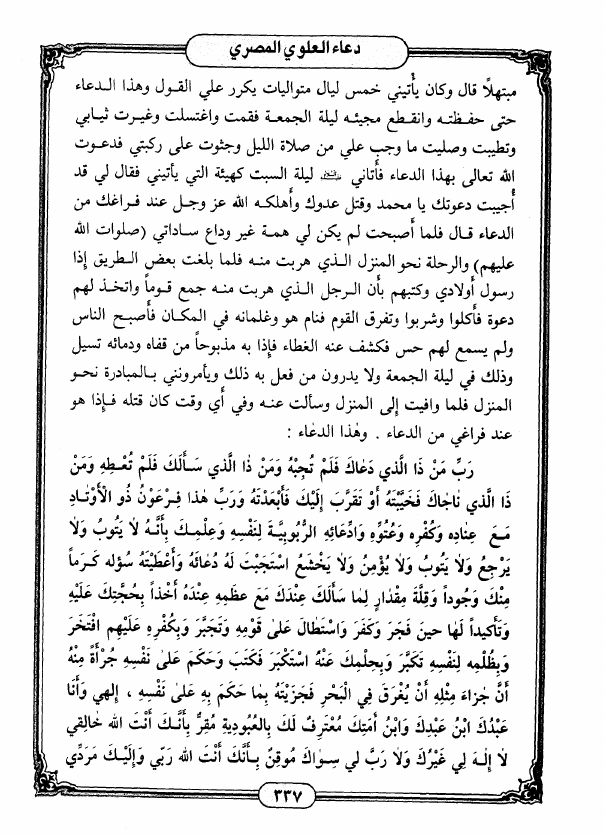 دعاء العلوي المصري
مبتهلًا قال وكان يأتيني خمس ليال متواليات يكرر علي القول وهذا الدعاء
حتى حفظته وانقطع مجيئه ليلة الجمعة فقمت واغتسلت وغيرت ثيابي
وتطيبت وصليت ما وجب علي من صلاة الليل وجثوت على ركبتي فدعوت
الله تعالى بهذا الدعاء فأتاني ليلة السبت كهيئة التي يأتيني فقال لي قد
أجيبت دعوتك يا محمد وقتل عدوك وأهلكه الله عز وجل عند فراغك من
الدعاء قال فلما أصبحت لم يكن لي همة غير وداع ساداتي (صلوات الله
عليهم) والرحلة نحو المنزل الذي هربت منه فلما بلغت بعض الطريق إذا
رسول أولادي وكتبهم بأن الرجل الذي هربت منه جمع قوماً واتخذ لهم
دعوة فأكلوا وشربوا وتفرق القوم فنام هو وغلمانه في المكان فأصبح الناس
ولم يسمع لهم حس فكشف عنه الغطاء فإذا به مذبوحاً من قفاه ودمائه تسيل
وذلك في ليلة الجمعة ولا يدرون من فعل به ذلك ويأمرونني بالمبادرة نحو
المنزل فلما وافيت إلى المنزل وسألت عنه وفي أي وقت كان قتله فإذا هو
عند فراغي من الدعاء . وهذا الدعاء :
رَبِّ مَنْ ذَا الَّذي دَعَاكَ فَلَمْ تُجِبْهُ وَمَنْ ذَا الَّذي سَأَلَكَ فَلَمْ تُعْطِهِ وَمَنْ
ذَا الَّذي نَاجَاكَ فَخَيَّبْتَهُ أَوْ تَقَرَّبَ إِلَيْكَ فَأَبْعَدْتَهُ وَرَبِّ هٰذا فِرْعَوْنُ ذُو الْأَوْتَادِ
مَعَ عِنَادِهِ وَكُفْرِهِ وَعُتُوِّهِ وَادِّعَائِهِ الرُّبُوبِيَّةَ لِنَفْسِهِ وَعِلْمِكَ بِأَنَّهُ لَا يَتُوبُ وَلَا
يَرْجِعُ وَلَا يَتُوبُ وَلَا يُؤْمِنُ وَلَا يَخْشَعُ اسْتَجَبْتَ لَهُ دُعَائَهُ وَأَعْطَيْتَهُ سُؤْلَه كَرَماً
مِنْكَ وَجُوداً وَقِلَّةَ مِقْدَارٍ لِمَا سَأَلَكَ عِنْدَكَ مَعَ عظَمِهِ عِنْدَهُ أَخْذاً بِحُجَّتِكَ عَلَيْهِ
وَتَأْكيداً لَهَا حينَ فَجَرَ وَكَفَرَ وَاسْتَطَالَ عَلَىٰ قَوْمِهِ وَتَجَبَّرَ وَبِكُفْرِهِ عَلَيْهِم افْتَخَرَ
وَبِظُلْمِه لِنَفْسِهِ تَكَبَّرَ وَبِحِلْمِكَ عَنْهُ اسْتَكْبَرَ فَكَتَبَ وَحَكَمَ عَلَىٰ نَفْسِهِ جُرْأَةً مِنْهُ
أَنَّ جَزاءَ مِثْلِهِ أَنْ يُغْرَقَ فِي الْبَحْرِ فَجَزَيْتَهُ بِمَا حَكَمَ بِهِ عَلَىٰ نَفْسِهِ ، إِلهي وَأَنَا
عَبْدُكَ ابْنُ عَبْدِكَ وَابْنُ أَمَتِكَ مُعْتَرِفٌ لَكَ بِالْعُبُودِيةِ مُقِرٌّ بِأَنَّكَ أَنْتَ الله خَالِقي
لَا إِلٰهَ لِي غَيْرُكَ وَلَا رَبَّ لي سِوَاكَ مُوقِنٌ بِأَنَّكَ أَنْتَ الله رَبِّي وَإِلَيْكَ مَرَدِّي
٣٣٧